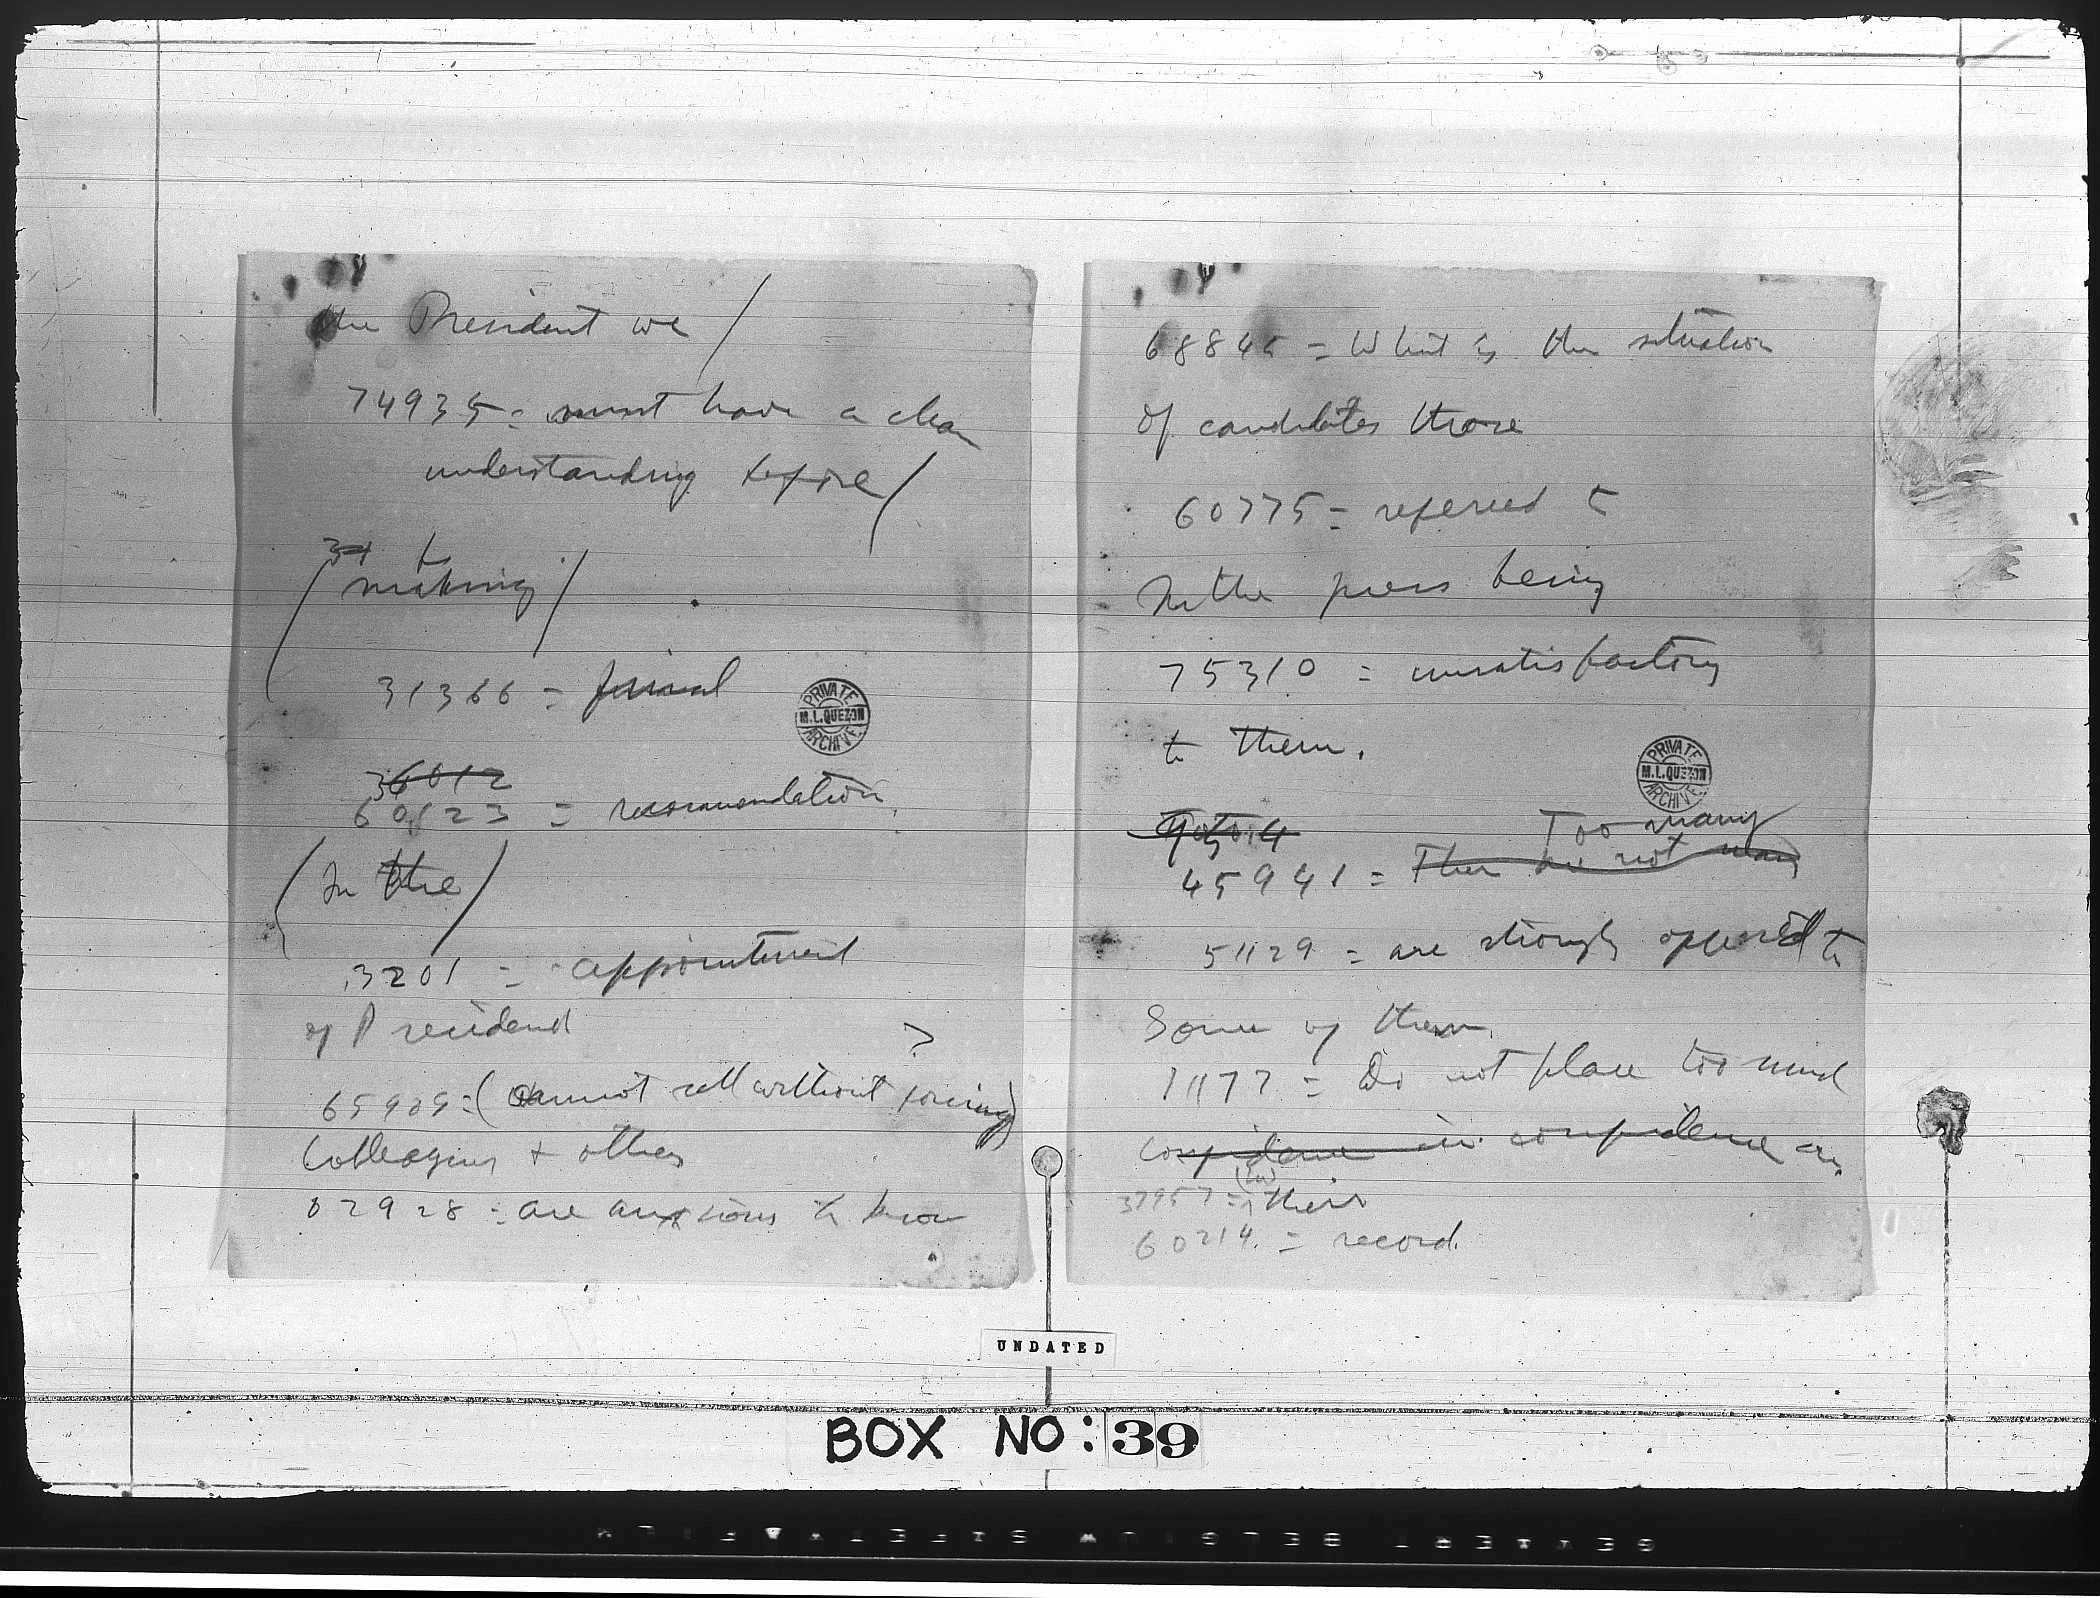 the President we /
74935 = must have a clear
understanding before /
/ making /
31366 = final
36012
60123 = recommendation.
( In the /
3201 = appointment
of President
65929 = (cannot sell without
Colleagues + others
02928 = are anxious to know
PRIVATE
M.L.QUEZON
ARCHIVE
68845 = What is the situation
Of candidates those
60775 = referred to
In the press being
75310 = unsatisfactory
to them.
Too many
45941 = There are not many
51129 = are strongly opposed to
Some of them.
11177 = Do not place too much
confidence in confidence in
37957 = their
60214. = record.
PRIVATE
M.L.QUEZON
ARCHIVE
UNDATED
BOX NO: 39